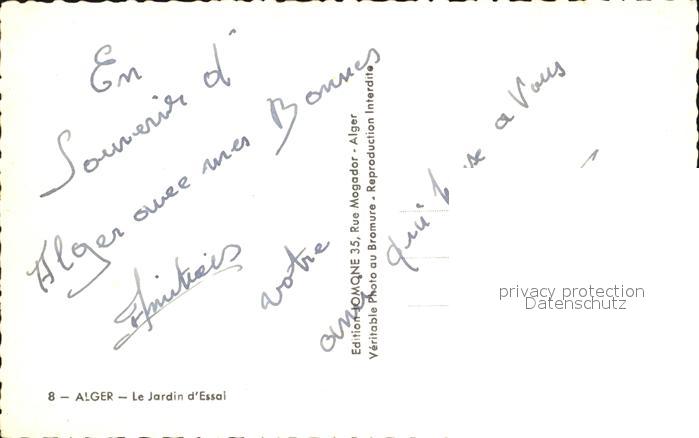 En
Souvenir d'
Alger avec mes Bonnes
Amitiés
votre
ami qui
a Vous
Edition JOMONE 35, Rue Mogador - Alger
Véritable Photo au Bromure - Reproduction Interdite
privacy protection
Datenschutz
8 — ALGER — Le Jardin d'Essai